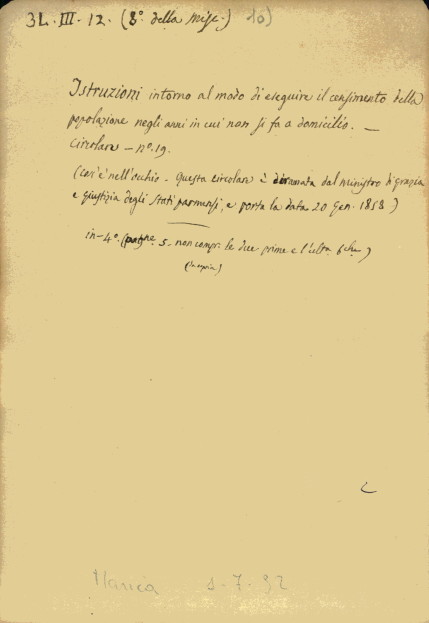 3L. III. 12. (8º della Misc.) 10)
Istruzioni intorno al modo di eseguire il censimento della
popolazione negli anni in cui non si fa a domicilio. —
Circolare — nº. 19.
(così è nell'occhio - Questa circolare è diramata dal ministro di grazia
e giustizia degli Stati parmensi, e porta la data 20 Gen. 1858)
in-4º. (pagne 5. non compr. le due prime e l'ult.
(in copia)
Marica 1-7-92